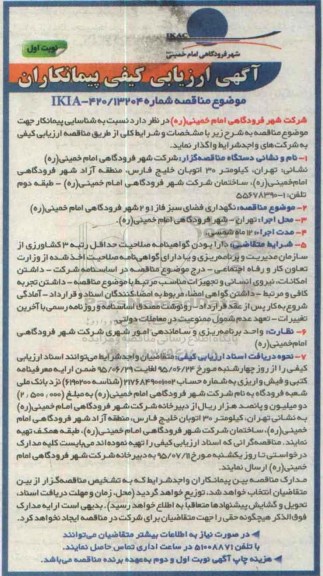 نوبت اول
IKAC
شهر فرودگاهی امام خمینی
آگهی ارزیابی کیفی پیمانکاران
موضوع مناقصه شماره IKIA-۴۲۰/۱۳۲۰۴
شرکت شهر فرودگاهی امام خمینی(ره) در نظر دارد نسبت به شناسایی پیمانکار جهت
موضوع مناقصه به شرح زیر با مشخصات و شرایط کلی از طریق مناقصه ارزیابی کیفی
به شرکت‌های واجدشرایط واگذار نماید.
۱- نام و نشانی دستگاه مناقصه‌گزار: شرکت شهر فرودگاهی امام خمینی(ره)
نشانی: تهران، کیلومتر ۳۰ اتوبان خلیج فارس، منطقه آزاد شهر فرودگاهی
امام‌خمینی(ره)، ساختمان شرکت شهر فرودگاهی امام خمینی(ره) - طبقه دوم
تلفن:
۲- موضوع مناقصه: نگهداری فضای سبز فاز ۱ و ۲ شهر فرودگاهی امام خمینی (ره)
۳- محل اجرا: تهران - شهر فرودگاهی امام خمینی(ره).
۴- مدت اجرا: ۱۲ ماه شمسی.
۵- شرایط متقاضی: دارا بودن گواهینامه صلاحیت حداقل رتبه ۳ کشاورزی از
سازمان مدیریت و برنامه‌ریزی و یا دارای گواهی‌نامه صلاحیت اخذ شده از وزارت
تعاون کار و رفاه اجتماعی - درج موضوع مناقصه در اساسنامه شرکت - داشتن
امکانات، نیروی انسانی و تجهیزات مناسب مرتبط با موضوع مناقصه - داشتن تجربه
کافی و مرتبط - داشتن گواهی امضاء مربوط به امضاکنندگان اسناد و قرارداد - آمادگی
شروع به کار پس از عقد قرارداد - رونوشت مصدق اساسنامه و روزنامه رسمی با آخرین
تغییرات - تعهد عدم شمول ممنوعیت در معاملات دولتی
۶- نظارت: واحد برنامه‌ریزی و ساماندهی امور شهری شرکت شهر فرودگاهی
امام خمینی(ره)
۷- نحوه دریافت اسناد ارزیابی کیفی: متقاضیان واجد شرایط می‌توانند اسناد ارزیابی
کیفی را از روز چهارشنبه مورخ ۹۵/۰۶/۲۴ لغایت ۹۵/۰۶/۲۹ ضمن ارایه معرفی‌نامه
کتبی و فیش واریزی به شماره حساب نزد بانک ملی
شعبه فرودگاه به نام شرکت شهر فرودگاهی امام خمینی(ره) به مبلغ
دو میلیون و پانصد هزار ریال از دبیرخانه شرکت شهر فرودگاهی امام خمینی(ره)
به نشانی تهران، کیلومتر ۳۰ اتوبان خلیج فارس، منطقه آزاد شهر فرودگاهی امام
خمینی(ره)، ساختمان شرکت شهر فرودگاهی امام خمینی(ره)، طبقه همکف تهیه
نمایند. مناقصه‌گرانی که اسناد ارزیابی کیفی را تهیه نموده‌اند می‌بایست کلیه مدارک
درخواستی تا روز یکشنبه مورخ ۹۵/۰۷/۱۱ به دبیرخانه شرکت شهر فرودگاهی امام
خمینی(ره) ارسال نمایند.
مدارک مناقصه بین پیمانکاران واجد شرایط که به تشخیص مناقصه‌گزار از بین
متقاضیان انتخاب خواهد شد، توزیع خواهد گردید (محل، زمان و مهلت دریافت اسناد،
تحویل و گشایش پیشنهادها متعاقبا به اطلاع خواهد رسید). بدیهی است ارایه مدارک
فوق‌الذکر هیچگونه حقی را جهت متقاضیان برای شرکت در مناقصه ایجاد نخواهد کرد.
در صورت نیاز به اطلاعات بیشتر متقاضیان می‌توانند
با تلفن ۵۱۰۰۸۸۷۱ در ساعات اداری تماس حاصل نمایند.
هزینه چاپ آگهی نوبت اول و دوم به‌عهده برنده مناقصه می‌باشد.